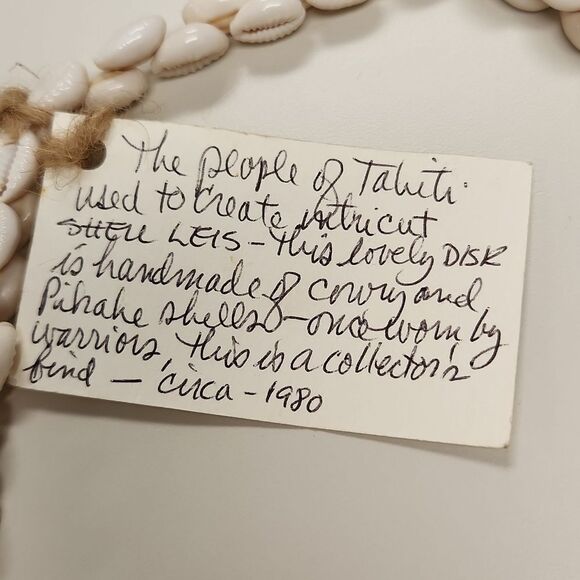 The people of Tahiti
used to create intricut
SHELL LEIS – this lovely DISK
is handmade of cowry and
Pikake shells – once worn by
warriors, this is a collector's
find – circa – 1980